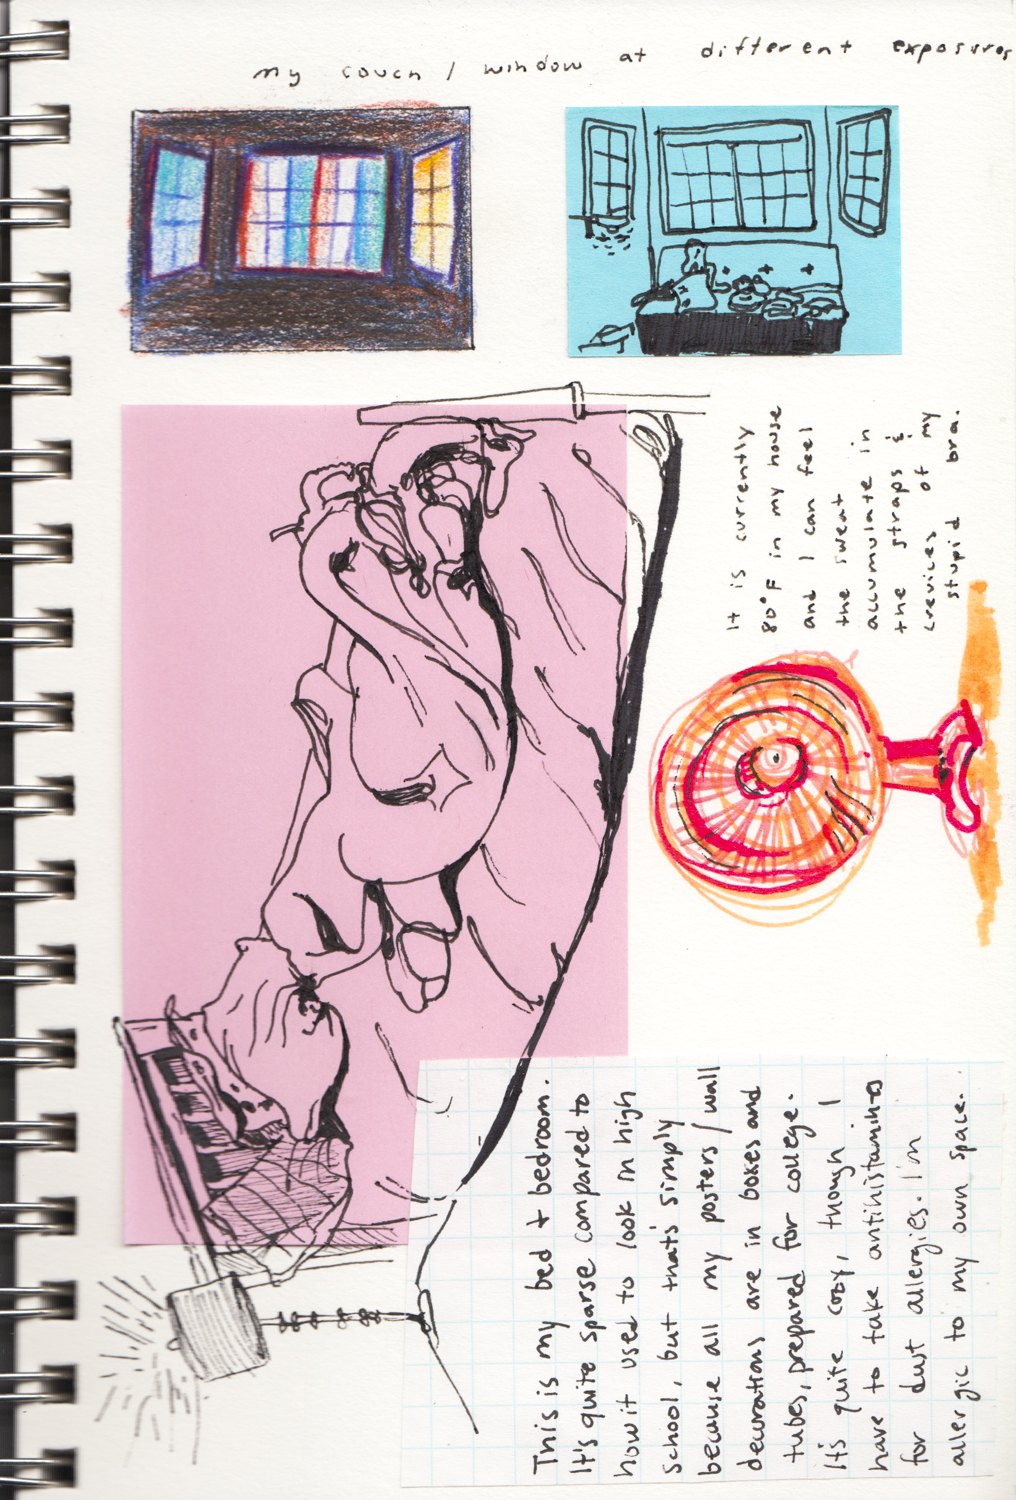 my couch / window at different exposures
It is currently
80°F in my house
and I can feel
the sweat
accumulate in
the straps &
crevices of my
stupid bra.
This is my bed + bedroom.
It's quite sparse compared to
how it used to look in high
school, but that's simply
because all my posters / wall
decorations are in boxes and
tubes, prepared for college.
It's quite cozy, though I
have to take antihistamines
for dust allergies. I'm
allergic to my own space.